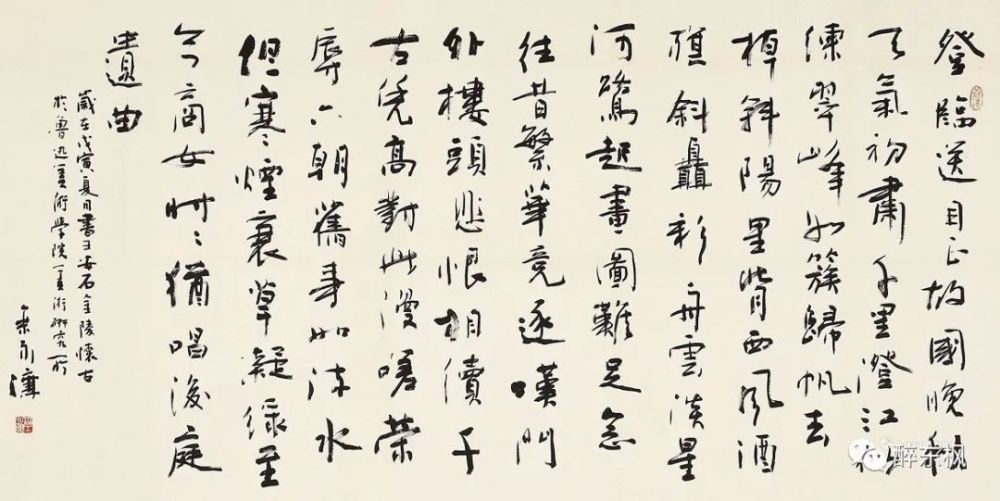 登臨送目正故國晚秋
天氣初肅千里澄江似
練翠峰如簇歸帆去
棹斜陽里背西風酒
旗斜矗彩舟雲淡星
河鷺起畫圖難足念
往昔繁華競逐嘆門
外樓頭悲恨相續千
古凭高對此漫嗟榮
辱六朝舊事如流水
但寒煙衰草凝綠至
今商女時〻猶唱後庭
遺曲
歲在戊寅夏月書王安石金陵懷古
於魯迅美術學院美術研究所
醉东枫